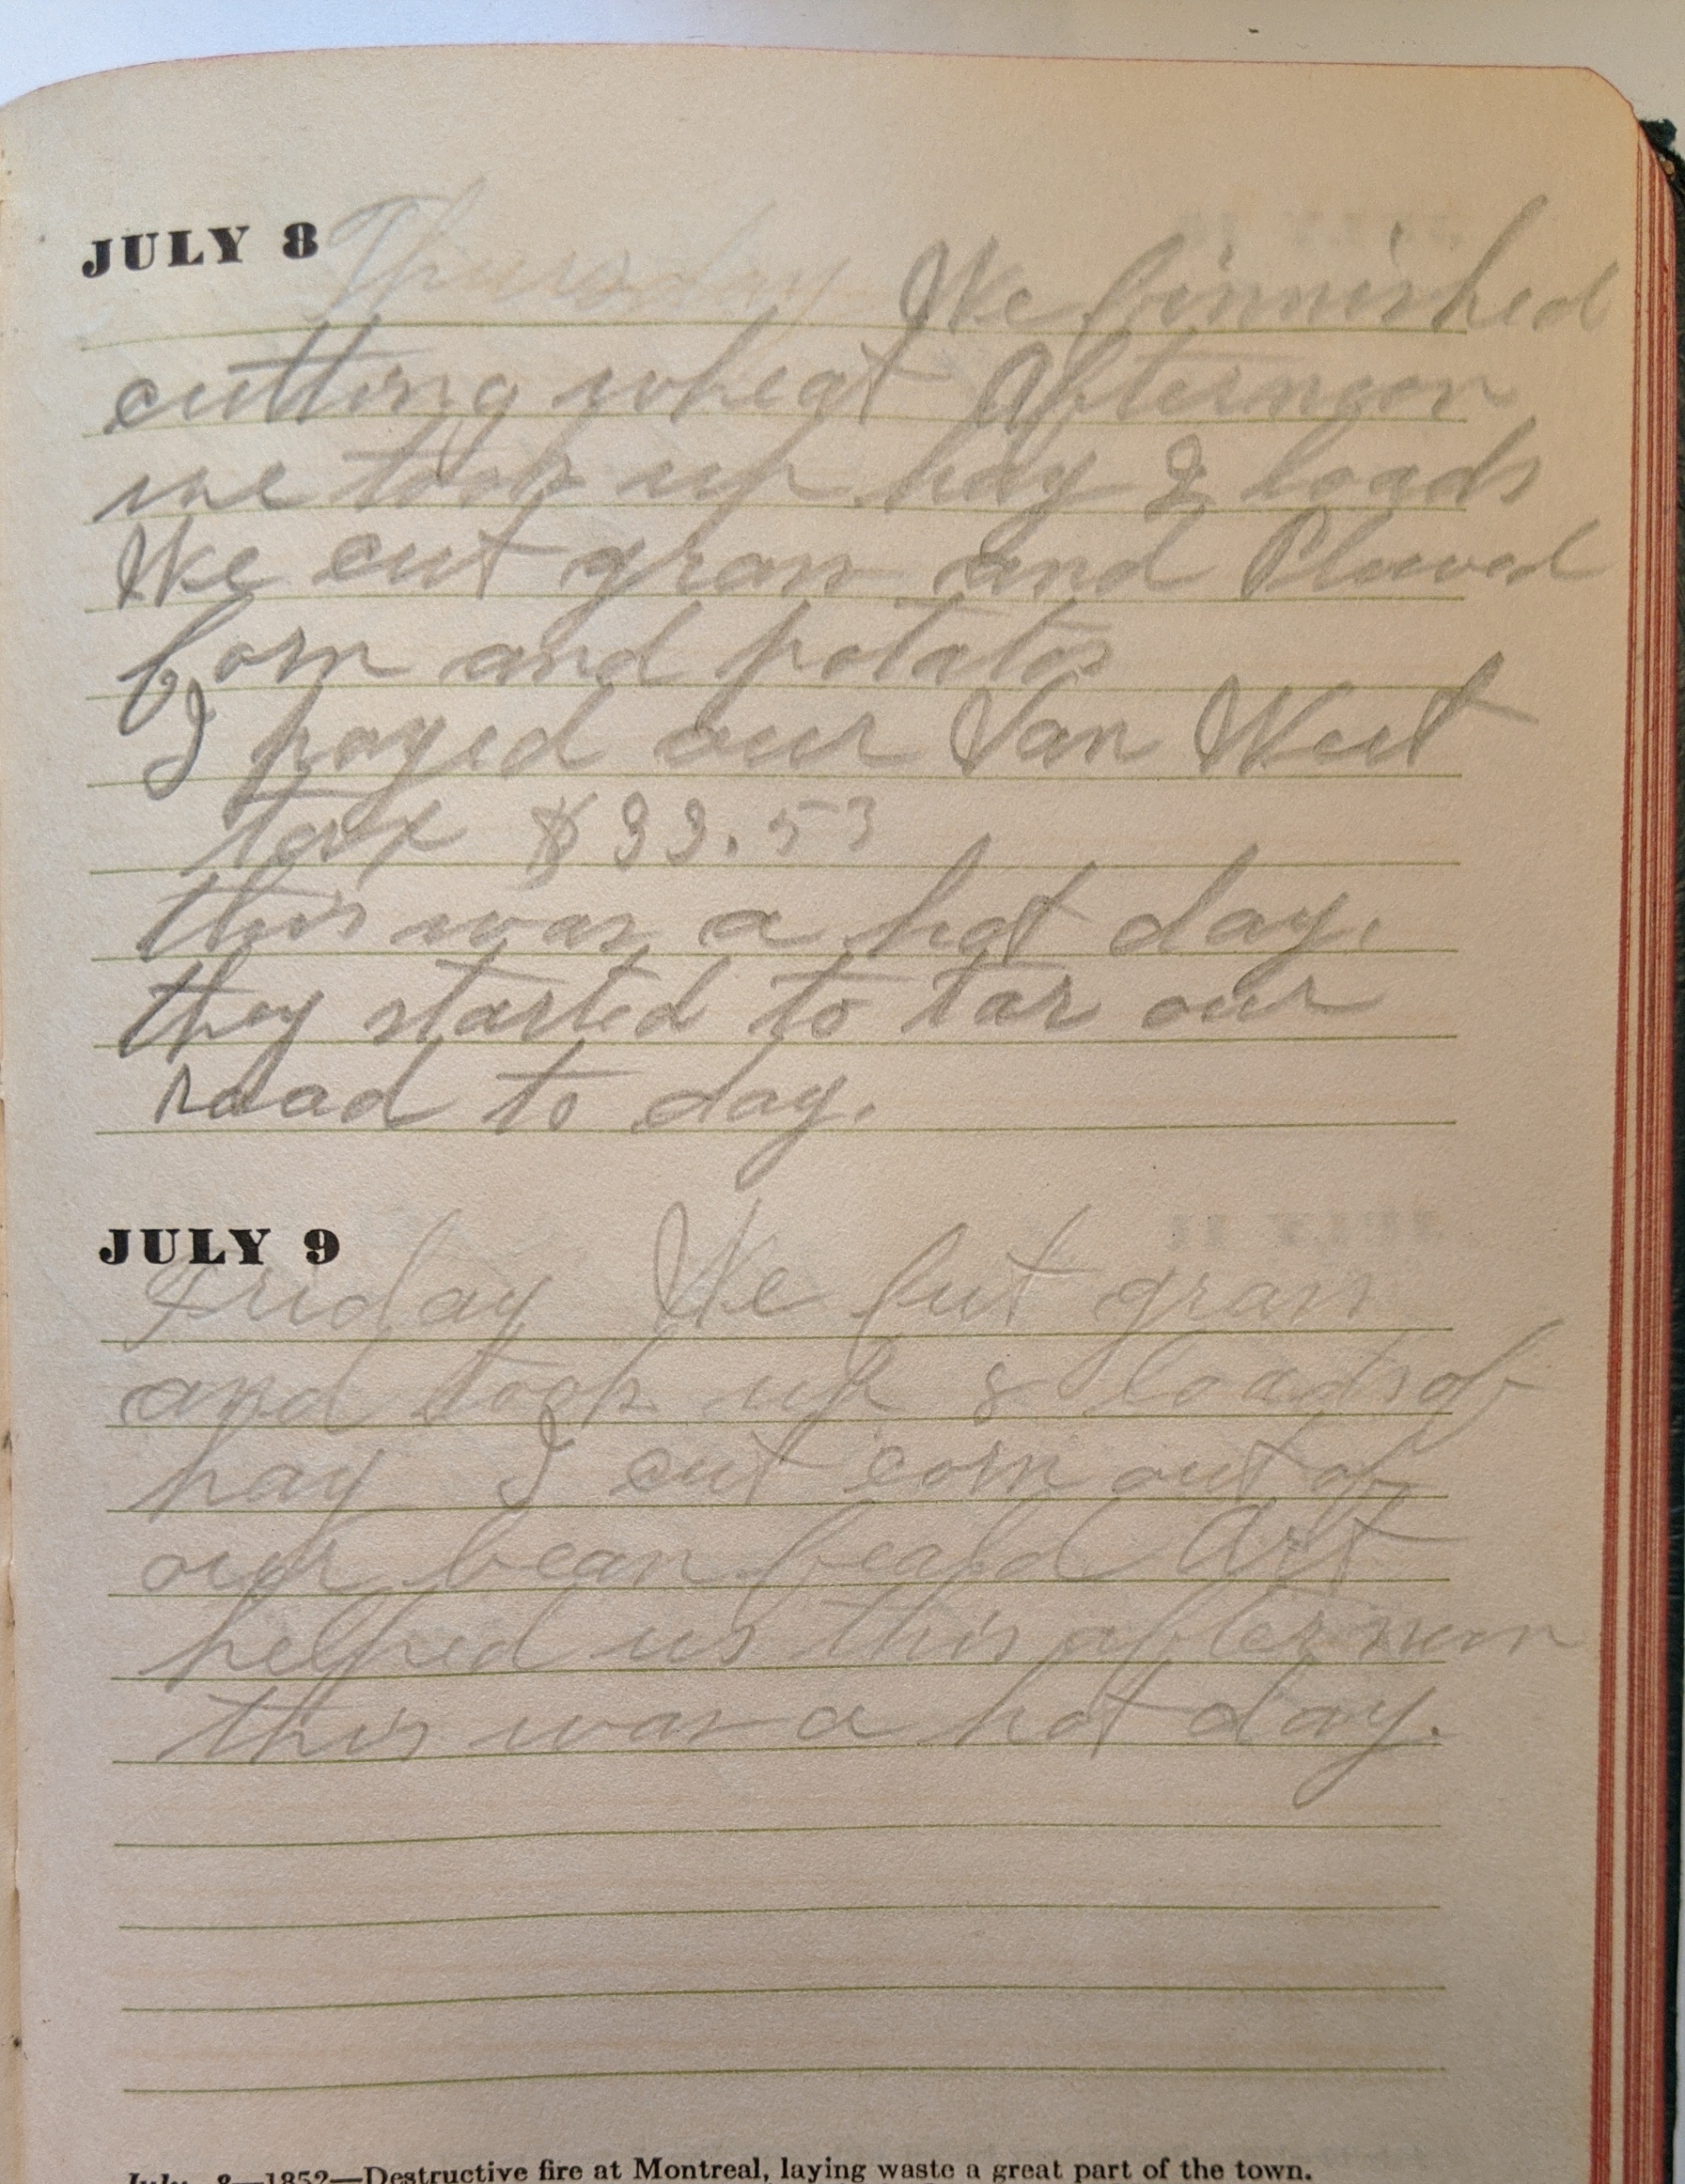 JULY 8 Thursday We finnished
cutting wheat Afternoon
we took up hay 2 loads
We cut grass and Plowed
Corn and potatos
I payed our Van Wert
tax $33.53
this was a hot day.
they started to tar our
road to day.
JULY 9
Friday We cut grass
and took up 8 loads of
hay I cut corn out of
our bean Art
helped us this afternoon
this was a hot day.
July 8—1852—Destructive fire at Montreal, laying waste a great part of the town.